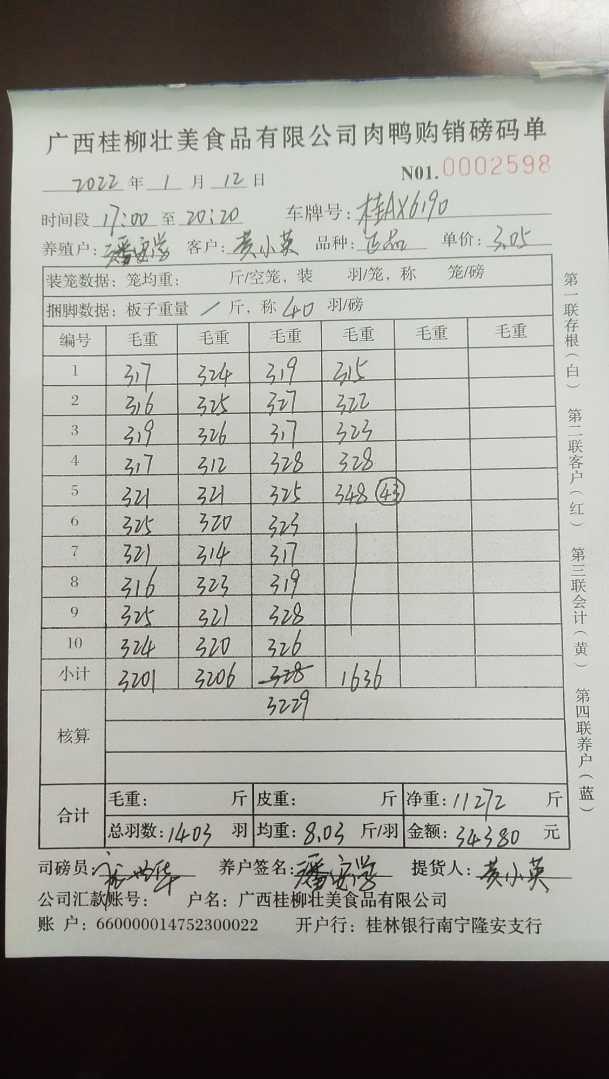 广西桂柳壮美食品有限公司肉鸭购销磅码单
2022 年 1 月 12 日 N01.0002598
时间段 17:00 至 20:20 车牌号: 桂AX6190
养殖户: 潘安学 客户: 黄小英 品种: 正品 单价: 3.05
装笼数据: 笼均重: 斤/空笼, 装 羽/笼, 称 笼/磅
捆脚数据: 板子重量 / 斤, 称 40 羽/磅
编号 毛重 毛重 毛重 毛重 毛重 毛重
1 317 324 319 315
2 316 325 327 322
3 319 326 317 323
4 317 312 328 328
5 321 321 325 348 43
6 325 320 323
7 321 314 317
8 316 323 319
9 325 321 328
10 324 320 326
小计 3201 3206 328 1636
3229
核算
合计
毛重: 斤 皮重: 斤 净重: 11272 斤
总羽数: 1403 羽 均重: 8.03 斤/羽 金额: 34380 元
司磅员: 养户签名: 潘安学 提货人: 黄小英
公司汇款账号: 户名: 广西桂柳壮美食品有限公司
账 户: 660000014752300022 开户行: 桂林银行南宁隆安支行
第一联存根(白) 第二联客户(红) 第三联会计(黄) 第四联养户(蓝)